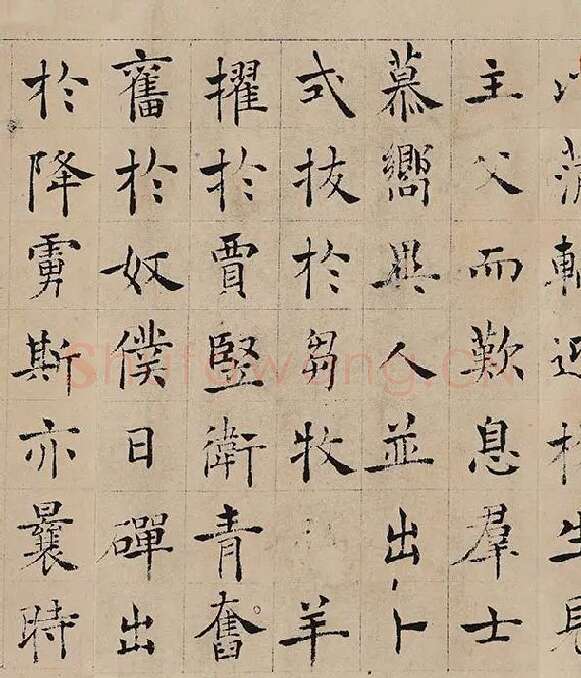 以蒲輪迎枚生見
主父而歎息羣士
慕嚮異人並出卜
式拔於芻牧羊
擢於賈豎衛青奮
舊於奴僕日磾出
於降虜斯亦曩時
Shufawang.CN